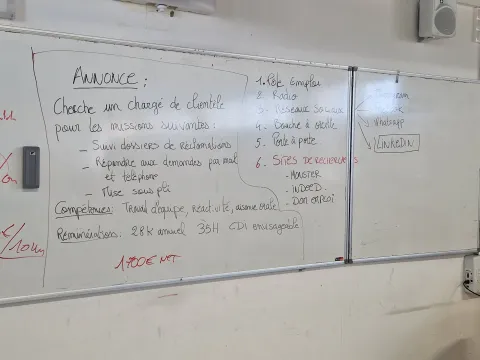 ANNONCE :
Cherche un chargé de clientèle
pour les missions suivantes :
- Suivi dossiers de réclamations
- Répondre aux demandes par mail
et téléphone
- Mise sous pli
Compétences : Travail d'équipe, réactivité, aisance orale
Rémunérations : 28K annuel 35H CDI envisageable
1700€ NET
1. Pôle Emploi
2. Radio
3. Réseaux sociaux
4. Bouche à oreille
5. Porte à porte
6. SITES DE RECHERCHES
- MONSTER
- INDEED
- DON EMPLOI
Whatsapp
LINKEDIN
€/10km